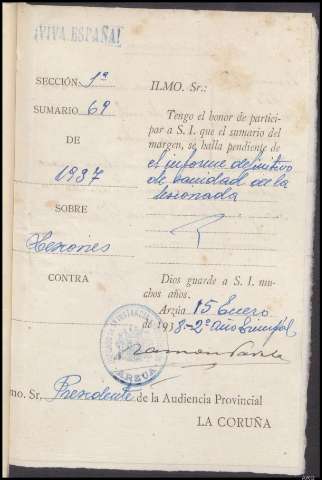 ¡VIVA ESPAÑA!
SECCIÓN 1ª
SUMARIO 69
DE
1937
SOBRE
Lesiones
CONTRA
ILMO. Sr.:
Tengo el honor de partici-
par a S. I. que el sumario del
margen, se halla pendiente de
el informe definitivo
de sanidad de la
lesionada
Dios guarde a S. I. mu-
chos años.
Arzúa 15 Enero
de 1938.-2º Año Triunfal
Ramón
ARZUA
mo. Sr. Presidente de la Audiencia Provincial
LA CORUÑA